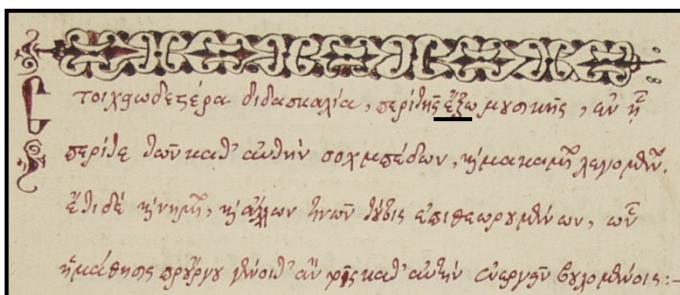 Στοιχιωδεστέρα διδασκαλία, περὶ τῆς ἔξω μουσικῆς, ἐν ᾗ
περί τε τῶν κατ' αὐτὴν σοχμπέδων, καὶ μακαμίων λεγομένων.
ἔτι δὲ καὶ νημίων, καὶ ἄλλων τινῶν τούτοις ἐπιθεωρουμένων, ὧν
ἡ μάθησις προὔργου γένοιτ' ἂν τοῖς κατ' αὐτὴν ἐνεργεῖν βουλομένοις:-